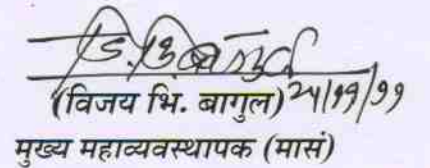 (विजय भि. बागुल) २५/११/११
मुख्य महाव्यवस्थापक (मासं)